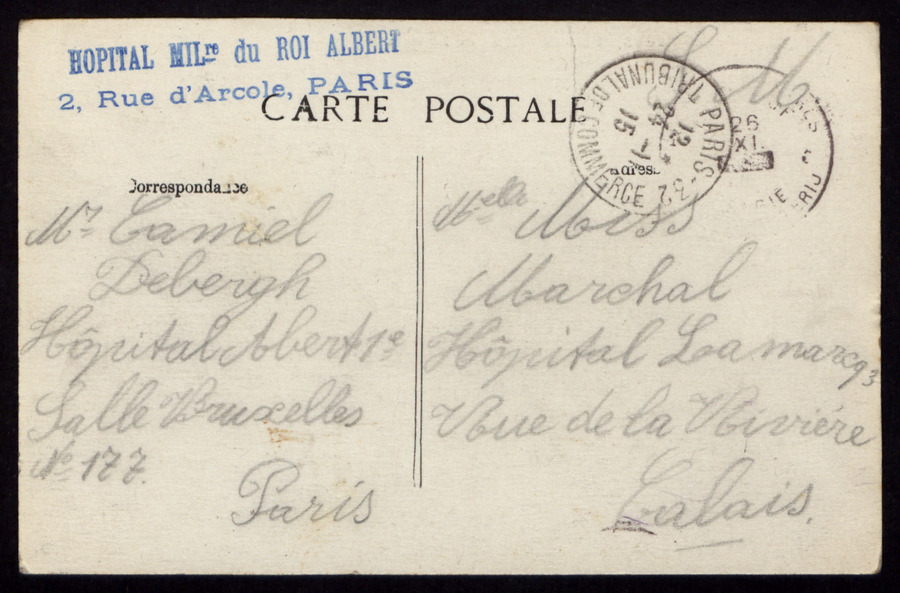 HOPITAL MILre du ROI ALBERT
2, Rue d'Arcole, PARIS
CARTE POSTALE
S. M.
PARIS-32
TRIBUNAL DE COMMERCE
12
24 -11
15
26
XI
Correspondance
Adresse
Mr Camiel
Debergh
Hôpital Abert 1e
Salle Bruxelles
No 177.
Paris
Melle Miss
Marchal
Hôpital Lamarcq
Rue de la Riviére
Calais.